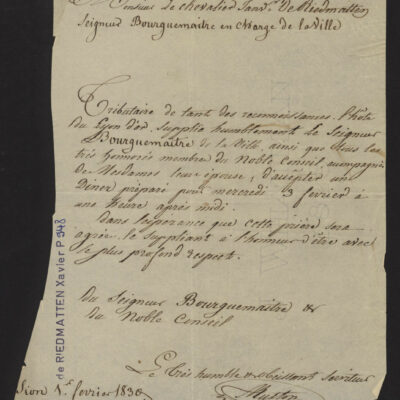 Monsieur le Chevalier Janv. De Riedmatten
Seigneur Bourguemaitre en charge de la Ville
Tributaire de tant des reconnoissances. l'hôte
du Lyon d'or. Supplie humblement le Seigneur
Bourguemaitre de la Ville, ainsi que tous les
très honorés membres du Noble Conseil, accompagnés
de Mesdames leur épouse, d'accepter un
Diner préparé pour mercredi 3 fevrier à
une heure après midi.
Dans l'espérance que cette prière sera
agrée. le Suppliant à l'honneur d'être avec
le plus profond respect.
du Seigneur Bourguemaitre &
du Noble Conseil
Le très humble & obéissant serviteur
Sion 1.r fevrier 1830
de RIEDMATTEN Xavier P 948